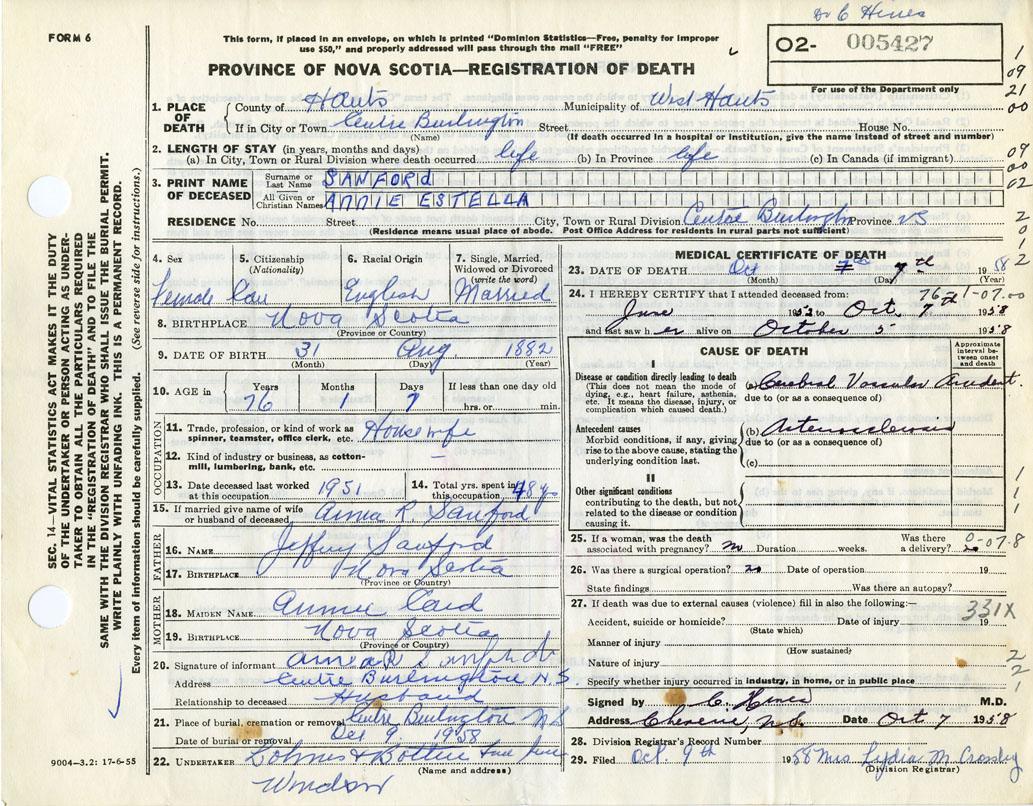 Dr C Hines
FORM 6
This form, if placed in an envelope, on which is printed "Dominion Statistics—Free, penalty for improper
use $50," and properly addressed will pass through the mail "FREE"
02- 005427
PROVINCE OF NOVA SCOTIA—REGISTRATION OF DEATH
For use of the Department only
1 09 21 00
1. PLACE OF DEATH
County of Hants Municipality of West Hants
If in City or Town Centre Burlington Street House No.
(Name) (If death occurred in a hospital or institution, give the name instead of street and number)
2. LENGTH OF STAY (in years, months and days)
(a) In City, Town or Rural Division where death occurred life (b) In Province life (c) In Canada (if immigrant)
3. PRINT NAME OF DECEASED
Surname or Last Name SANFORd
All Given or Christian Names ANNIE ESTELLA
RESIDENCE No. Street City, Town or Rural Division Centre Burlington Province NS
(Residence means usual place of abode. Post Office Address for residents in rural parts not sufficient)
4. Sex 5. Citizenship (Nationality) 6. Racial Origin 7. Single, Married, Widowed or Divorced (write the word)
Female Can English Married
8. BIRTHPLACE Nova Scotia
(Province or Country)
9. DATE OF BIRTH 31 Aug. 1882
(Month) (Day) (Year)
10. AGE in Years Months Days If less than one day old
76 1 7 hrs. or min.
OCCUPATION
11. Trade, profession, or kind of work as spinner, teamster, office clerk, etc. Housewife
12. Kind of industry or business, as cotton-mill, lumbering, bank, etc. —
13. Date deceased last worked at this occupation 1951 14. Total yrs. spent in this occupation 48 ys
15. If married give name of wife or husband of deceased R. Sanford
FATHER
16. NAME Jeffrey Sanford
17. BIRTHPLACE Nova Scotia
(Province or Country)
MOTHER
18. MAIDEN NAME Annie Caid
19. BIRTHPLACE Nova Scotia
(Province or Country)
20. Signature of informant R Sanford
Address Centre Burlington N.S.
Relationship to deceased Husband
21. Place of burial, cremation or removal Centre Burlington NS
Date of burial or removal 9, 1958
22. UNDERTAKER
(Name and address)
Windsor
MEDICAL CERTIFICATE OF DEATH
23. DATE OF DEATH Oct 7th 1958
(Month) (Day) (Year)
76-1-07.00
24. I HEREBY CERTIFY that I attended deceased from:
June 1953 to Oct. 7 1958
and last saw her alive on October 5 1958
CAUSE OF DEATH
Approximate interval between onset and death
I
Disease or condition directly leading to death
(This does not mean the mode of dying, e.g., heart failure, asthenia, etc. It means the disease, injury, or complication which caused death.)
(a) Cerebral Vascular Accident.
due to (or as a consequence of)
Antecedent causes
Morbid conditions, if any, giving rise to the above cause, stating the underlying condition last.
(b) Arteriosclerosis
due to (or as a consequence of)
(c)
II
Other significant conditions
contributing to the death, but not related to the disease or condition causing it.
25. If a woman, was the death associated with pregnancy? no Duration weeks. Was there a delivery? no
0-07.8
26. Was there a surgical operation? no Date of operation 19
State findings Was there an autopsy?
27. If death was due to external causes (violence) fill in also the following:—
331X
Accident, suicide or homicide? Date of injury 19
(State which)
Manner of injury
(How sustained)
Nature of injury
Specify whether injury occurred in industry, in home, or in public place
Signed by C. Hines M.D.
Address Cheverie, N.S. Date Oct. 7 1958
28. Division Registrar's Record Number
29. Filed Oct. 9th 1958 Mrs Lydia M Crossley
(Division Registrar)
SEC. 14—VITAL STATISTICS ACT MAKES IT THE DUTY
OF THE UNDERTAKER OR PERSON ACTING AS UNDER-
TAKER TO OBTAIN ALL THE PARTICULARS REQUIRED
IN THE "REGISTRATION OF DEATH" AND TO FILE THE
SAME WITH THE DIVISION REGISTRAR WHO SHALL ISSUE THE BURIAL PERMIT.
WRITE PLAINLY WITH UNFADING INK. THIS IS A PERMANENT RECORD.
Every item of information should be carefully supplied. (See reverse side for instructions.)
9004—3.2: 17-6-55